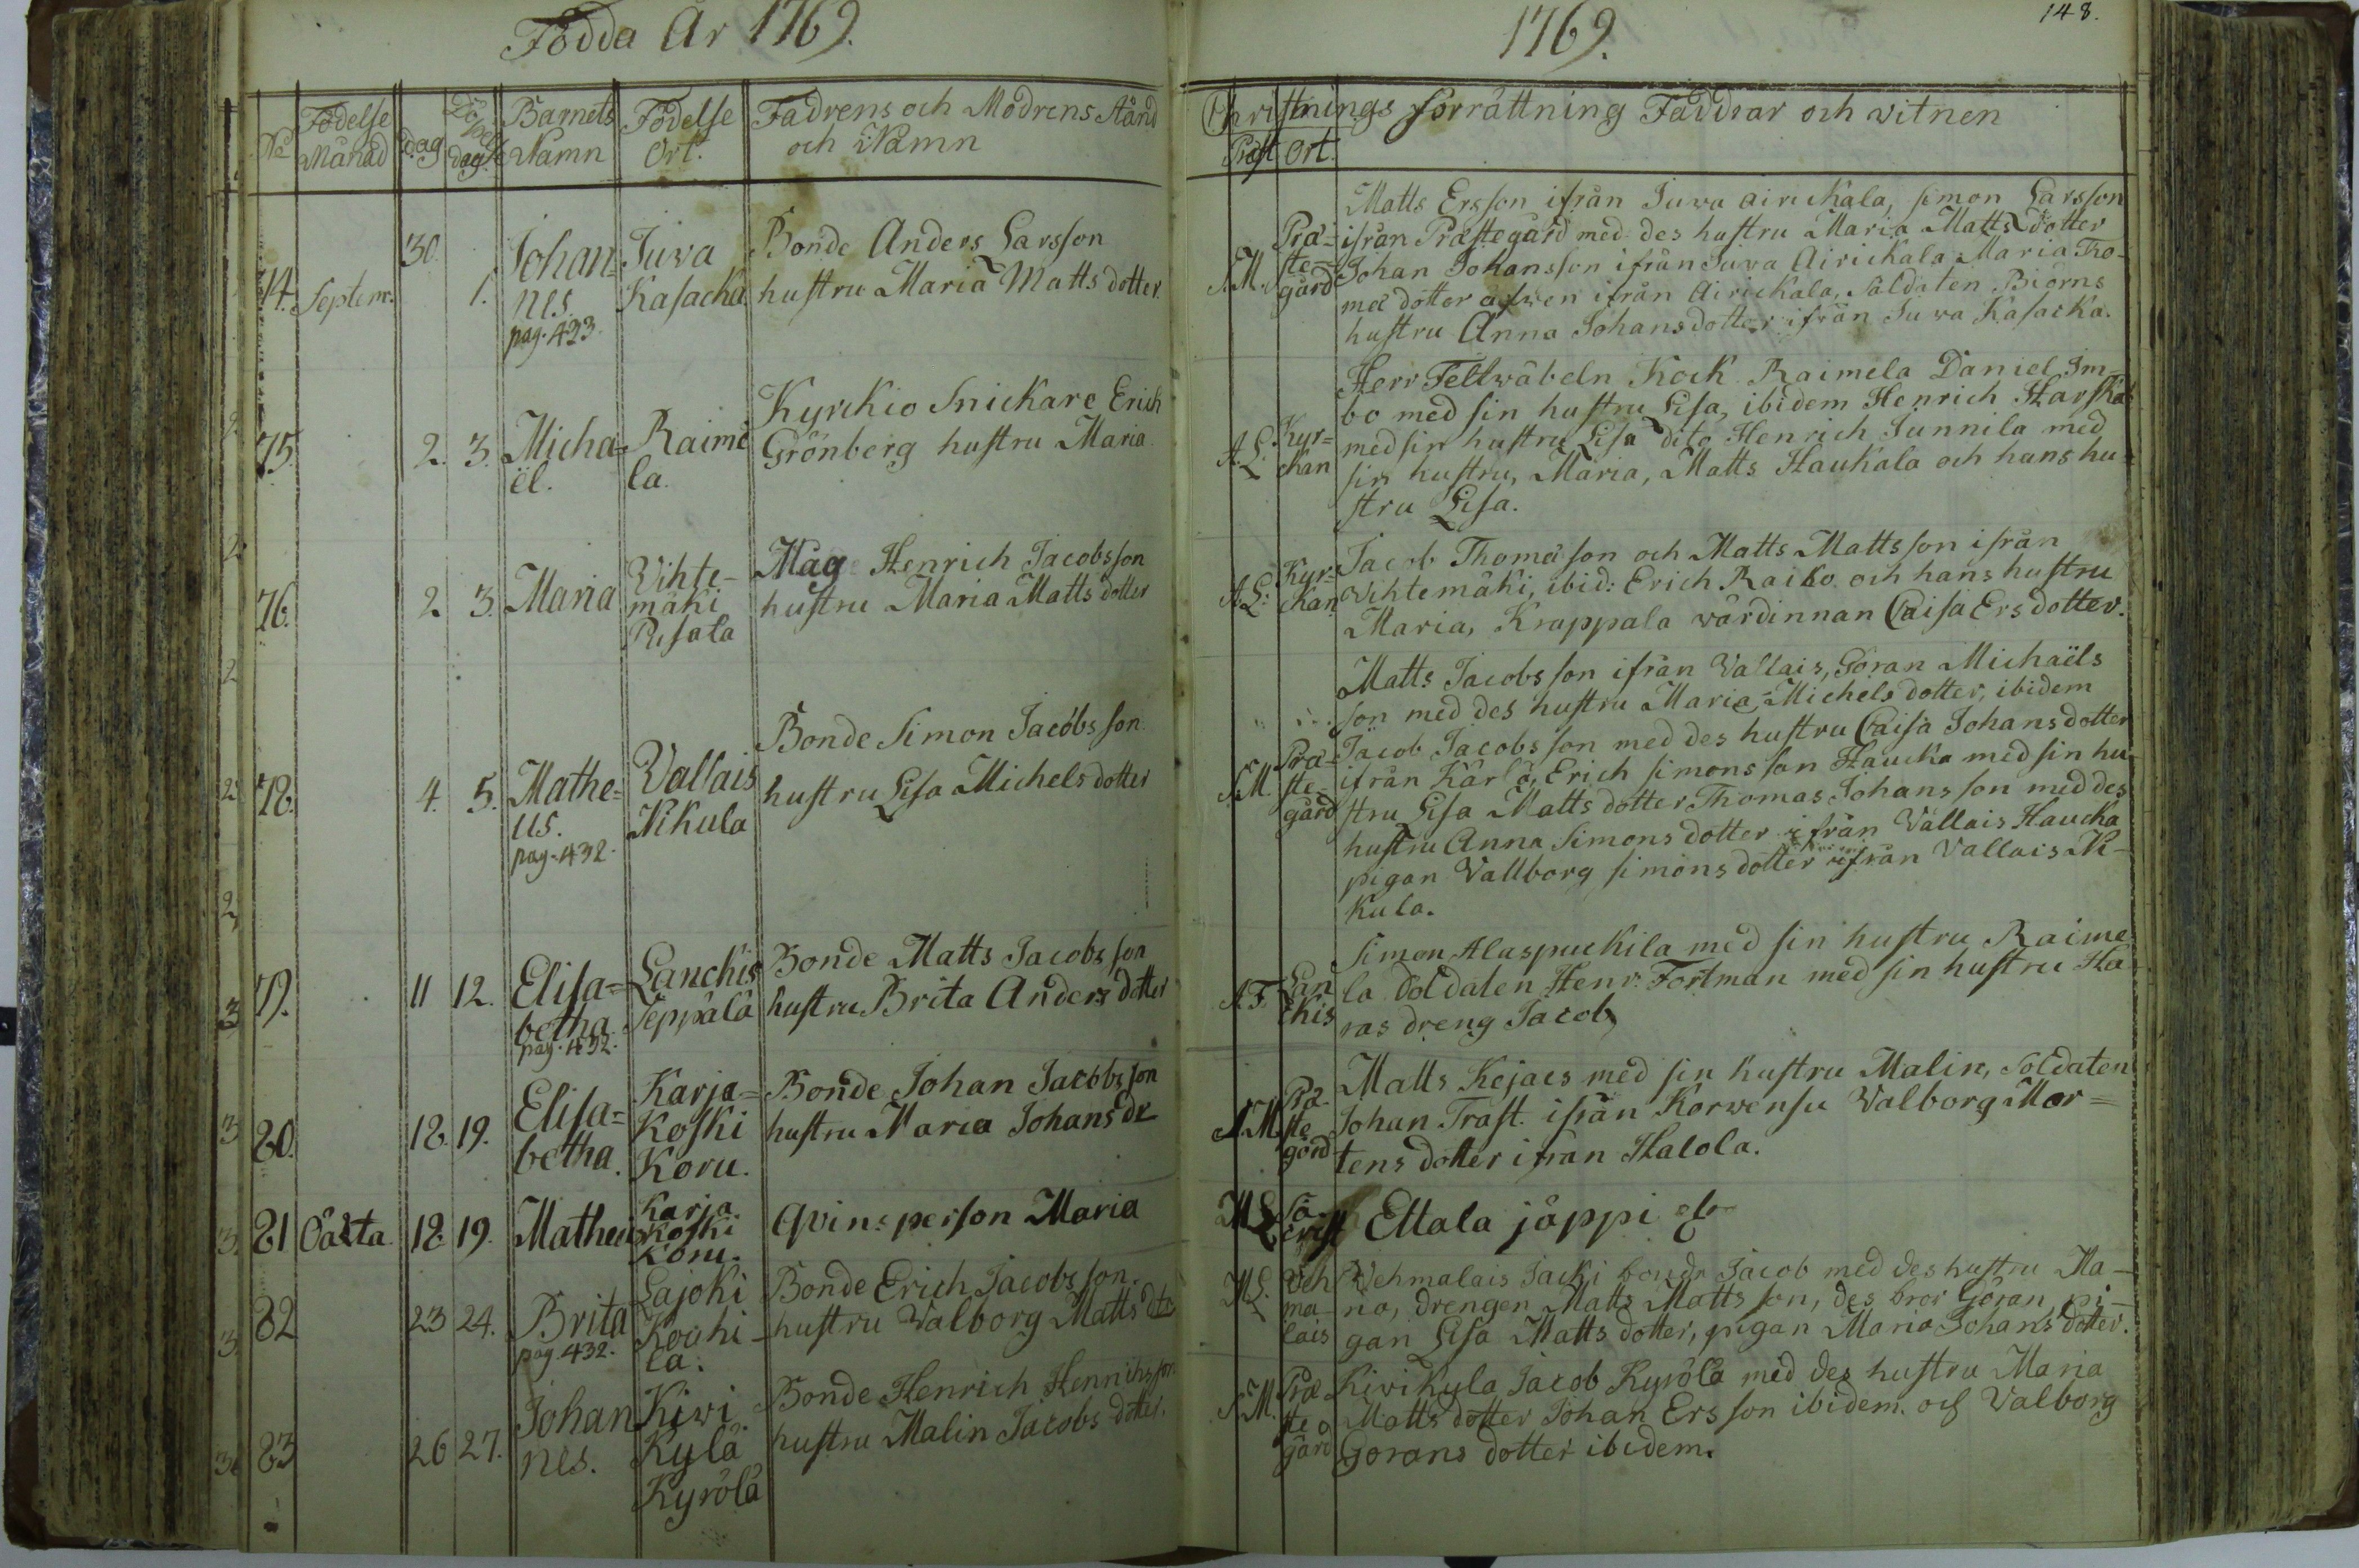 Födda År 1769.
No
Födelse
Månad
dag
Döpelse
dag.
Barnets
Namn
Födelse
Ort.
Fadrens och Modrens Stånd
och Namn
74. Septemr. 30. 1.
Johan=
nes.
pag. 433.
Juva
Kasacka
Bonde Anders Larsson
hustru Maria Matts dotter.
75. 2. 3.
Micha=
ël.
Raime
la.
Kyrckio Snickare Erich
Grönberg hustru Maria
76. 2. 3. Maria
Vihte-
mäki
Pusata
Måg Henrich Jacobsson
hustru Maria Matts dotter
78. 4. 5.
Mathe=
us.
pag. 432.
Vallais
Nikula
Bonde Simon Jacobsson
hustru Lisa Michels dotter
79. 11 12.
Elisa=
betha
pag. 432.
Lanckis
Seppälä
Bonde Matts Jacobsson
hustru Brita Anders dotter
80. 18. 19.
Elisa=
betha.
Karja=
Koski
Koru.
Bonde Johan Jacobsson
hustru Maria Johans Dr
81 18. 19. Matheus
Karja
koski
Koru.
Qvins person Maria
82 23 24.
Brita
pag. 432.
Lajoki
Kouhi-
la.
Bonde Erich Jacobsson.
hustru Valborg Matts dtr
83 26 27.
Johan
nes.
Kivi
Kylä
Kyrölä
Bonde Henrich Henrichsson
hustru Malin Jacobs dotter.
1769.
148.
Christnings förrättning Faddrar och vitnen
Präst Ort.
Matts Ersson ifrån Juva airickala, Simon Larsson
ifrån Prästegård med des hustru Maria Matts dotter
Johan Johansson ifrån Juva Airickala Maria Tho-
mæ dotter afwen ifrån Airickala, Soldaten Biörns
hustru Anna Johansdotter ifrån Juva Kasacka.
S.M.
Præ=
ste=
gård
Herr Feltwäbeln Kock Raimela Daniel Im-
bo med sin hustru Lisa, ibidem Henrich Harska
med sin hustru Lisa dito Henrich Junnila med
sin hustru, Maria, Matts Haukala och hans hu-
stru Lisa.
A.L.
Kyr=
ckan
Jacob Thomæson och Matts Mattsson ifrån
Vihtemäki, ibid: Erich Raiko och hans hustru
Maria, Krappala värdinnan Caisa Ersdotter.
A.L:
Kyr=
ckan
Matts Jacobsson ifrån Vallais, Göran Michaëls
son med des hustru Maria Michels dotter, ibidem
Jacob Jacobsson med des hustru Caisa Johans dotter
ifrån Kärlä, Erich Simonsson Haucka med sin hu
stru Lisa Matts dotter Thomas Johansson med des
hustru Anna Simons dotter ifrån Vallais Haucka
pigan Vallborg Simons dotter ifrån Vallais Ni-
kula.
S.M.
Præ-
ste-
gård
Simon Alaspuckila med sin hustru Raime
la Soldaten Henr: Fortman med sin hustru Ha
ras dreng Jacob
A.F.
Lan
ckis
Matts Kejaes med sin hustru Malin, Soldaten
Johan Trast. ifrån Korwensu Valborg Mor=
tens dotter ifran Halola.
S.M.
Præ
ste
gård
Ettala jåppi
M.L.
Vehmalais Jacki bonde Jacob med des hustru Ma-
na, drengen Matts Mattsson, des bror Göran, pi-
gan Lisa Matts dotter, pigan Maria Johans dotter.
M.L.
Veh
ma-
lais
Kivikyla Jacob Kyrölä med des hustru Maria
Matts dotter Johan Ersson ibidem. och Valborg
Gorans dotter ibidem.
S.M.
Præ
ste
gård